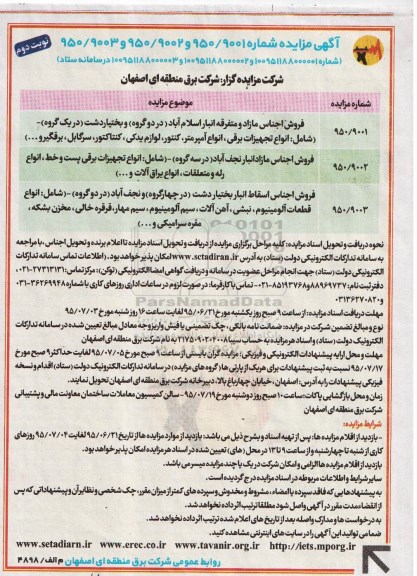 آگهی مزایده شماره ۹۵۰/۹۰۰۱ و ۹۵۰/۹۰۰۲ و ۹۵۰/۹۰۰۳
نوبت دوم
(شماره ۱۰۰۹۵۱۱۸۸۰۰۰۰۰۱ و ۱۰۰۹۵۱۱۸۸۰۰۰۰۰۲ و ۱۰۰۹۵۱۱۸۸۰۰۰۰۰۳ در سامانه ستاد)
شرکت مزایده گزار: شرکت برق منطقه ای اصفهان
شماره مزایده
موضوع مزایده
۹۵۰/۹۰۰۱
فروش اجناس مازاد و متفرقه انبار اسلام آباد (در دو گروه) و بختیاردشت (در یک گروه)-
(شامل: انواع تجهیزات برقی، انواع آمپرمتر، کنتور، لوازم یدکی، کنتاکتور، سرکابل، برقگیر و ...)
۹۵۰/۹۰۰۲
فروش اجناس مازاد انبار نجف آباد (در سه گروه) -(شامل: انواع تجهیزات برقی پست و خط، انواع
رله و متعلقات، انواع یراق آلات و ...)
۹۵۰/۹۰۰۳
فروش اجناس اسقاط انبار بختیار دشت (در چهار گروه) و نجف آباد (در دو گروه) -(شامل: انواع
قطعات آلومینیوم، نبشی، آهن آلات، سیم آلومینیوم، سیم مهار، قرقره خالی، مخزن بشکه،
مقره سرامیکی و ...)
نحوه دریافت و تحویل اسناد مزایده: کلیه مراحل برگزاری مزایده از دریافت و تحویل اسناد مزایده تا اعلام برنده و تحویل اجناس، با مراجعه
به سامانه تدارکات الکترونیکی دولت (ستاد) به آدرس www.setadiran.ir امکان پذیر خواهد بود. (اطلاعات تماس سامانه تدارکات
الکترونیکی دولت (ستاد) جهت انجام مراحل عضویت در سامانه و دریافت گواهی امضا الکترونیکی (توکن): مرکز تماس: ۲۷۳۱۳۱۳۱-۰۲۱
دفتر ثبت نام: ۸۸۹۶۹۷۳۷ و ۸۵۱۹۳۷۶۸-۰۲۱ تماس با کارفرما: در صورت لزوم در ساعات اداری روزهای کاری با شماره ۳۶۲۶۹۹۴۸-۰۳۱
مهلت دریافت اسناد مزایده: از ساعت ۹ صبح روز یکشنبه مورخ ۹۵/۰۶/۲۱ لغایت ساعت ۱۶ روز شنبه مورخ ۹۵/۰۷/۰۳
نوع و مبالغ تضمین شرکت در مزایده: ضمانت نامه بانکی، چک تضمینی یا فیش واریز وجه معادل مبالغ تعیین شده در سامانه تدارکات
الکترونیک دولت (ستاد) و اسناد هر مزایده به حساب سیبا به نام شرکت برق منطقه ای اصفهان
مهلت و محل ارایه پیشنهادات الکترونیکی و فیزیکی: مزایده گران بایستی از ساعت ۹ صبح مورخ ۹۵/۰۷/۰۵ لغایت حداکثر ۹ صبح مورخ
۹۵/۰۷/۱۷ نسبت به ثبت پیشنهادات برای هر یک از پارتی ها (گروه های مزایده) در سامانه تدارکات الکترونیک دولت (ستاد) اقدام و نسخه
فیزیکی پیشنهادات را به آدرس: اصفهان، خیابان چهارباغ بالا، دبیرخانه شرکت برق منطقه ای اصفهان تحویل نمایند.
زمان و محل بازگشایی پاکات: ساعت ۱۰ صبح روز دوشنبه مورخ ۹۵/۰۷/۱۹ - سالن کمیسیون معاملات ساختمان معاونت مالی و پشتیبانی
شرکت برق منطقه ای اصفهان
شرایط مزایده:
- بازدید از اقلام مزایده ها: پس از تهیه اسناد و بشرح ذیل می باشد: بازدید از موارد مزایده ها از تاریخ ۹۵/۰۶/۳۱ لغایت ۹۵/۰۷/۰۴ روزهای
کاری از شنبه تا چهارشنبه و از ساعت ۹ تا ۱۳ در محل (های) تعیین شده در اسناد هر مزایده امکان پذیر خواهد بود.
بازدید از اقلام مزایده ها الزامی و امکان شرکت در یک یا چند مزایده میسر می باشد.
سایر شرایط و اطلاعات مربوطه در اسناد مزایده درج گردیده است.
به پیشنهادهایی که فاقد سپرده یا امضاء، مشروط و مخدوش و سپرده های کمتر از میزان مقرر، چک شخصی و نظایر آن و پیشنهاداتی که پس
از انقضاء مدت مقرر در آگهی واصل شود مطلقا ترتیب اثر داده نخواهد شد.
به درخواست ها و مدارک واصله بعد از تاریخ های اعلام شده ترتیب اثر داده نخواهد شد.
ضمنا می توانید این آگهی را در سایت های اینترنتی مشاهده کنید.
www.setadiarn.ir www.erec.co.ir www.tavanir.org.ir http://iets.mporg.ir
روابط عمومی شرکت برق منطقه ای اصفهان
م الف/ ۴۸۹۸
ParsNamadData